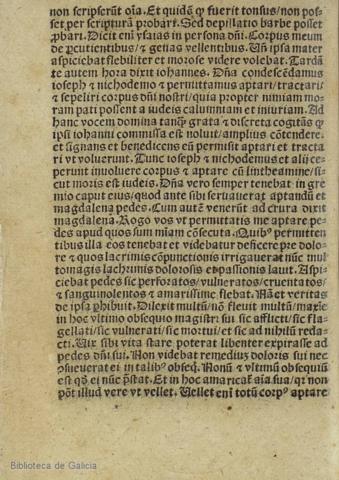 non scripserũt oĩa. Et quidẽ ꝙ fuerit tonsus/ non pos⸗
set per scripturã probari. Sed depillatio barbe posset
ꝓbari. Dicit em̃ ysaias in persona dñi. Corpus meum
de ꝑcutientibus/ ⁊ genas vellentibus. Uñ ipsa mater
aspiciebat flebiliter et morose videre volebat. Tardã
te autem hora dixit iohannes. Dña condescẽdamus
ioseph ⁊ nichodemo ⁊ permittamus aptari/ tractari/
⁊ sepeliri corpus dñi nostri/ quia propter nimiam mo⸗
ram pati possent a iudeis calumniam et iniuriam. Ad
hanc vocem domina tanꝙ̃ grata ⁊ discreta cogitãs ꝙ
ipsi iohanni commissa est noluit/ amplius cõtendere.
et signans et benedicens eũ permisit aptari et tracta
ri vt voluerunt. Tunc ioseph ⁊ nichodemus et alij ce⸗
perunt inuoluere corpus ⁊ aptare cũ lintheamine/ si⸗
cut moris est iudeis. Dña vero semper tenebat in gre
mio caput eius/ quod ante sibi seruauerat aptandũ et
magdalena pedes. Cum autẽ venerũt ad crura dixit
magdalena. Rogo vos vt permittatis me aptare pe⸗
des apud quos sum miam cõsecuta. Quibꝰ permitten
tibus illa eos tenebat et videbatur deficere pre dolo⸗
re ⁊ quos lacrimis cõpunctionis irrigauerat nũc mul
tomagis lachrimis dolorosis cõpassionis lauit. Aspi⸗
ciebat pedes sic perforatos/ vulneratos/ cruentatos/
⁊ sanguinolentos ⁊ amarissime flebat. Nã et veritas
de ipsa ꝑhibuit. Dilexit multũ/ nũ fleuit multũ/ maxĩe
in hoc vltimo obsequio magistri sui sic afflicti/ sic fla⸗
gellati/ sic vulnerati/ sic mortui/ et sic ad nihilũ reda⸗
cti. Uix sibi vita stare poterat libenter expirasse ad
pedes dñi sui. Non videbat remediũ doloris sui nec
ↄsueuerat ei in talibꝰ obseq̃. Nouũ ⁊ vltimũ obsequiũ
est qđ ei nũc p̃stat. Et in hoc amaricat̃ aĩa sua/ qr̃ non
põt illud vere vt vellet. Uellet em̃ totũ corpꝰ aptare
Biblioteca de Galicia